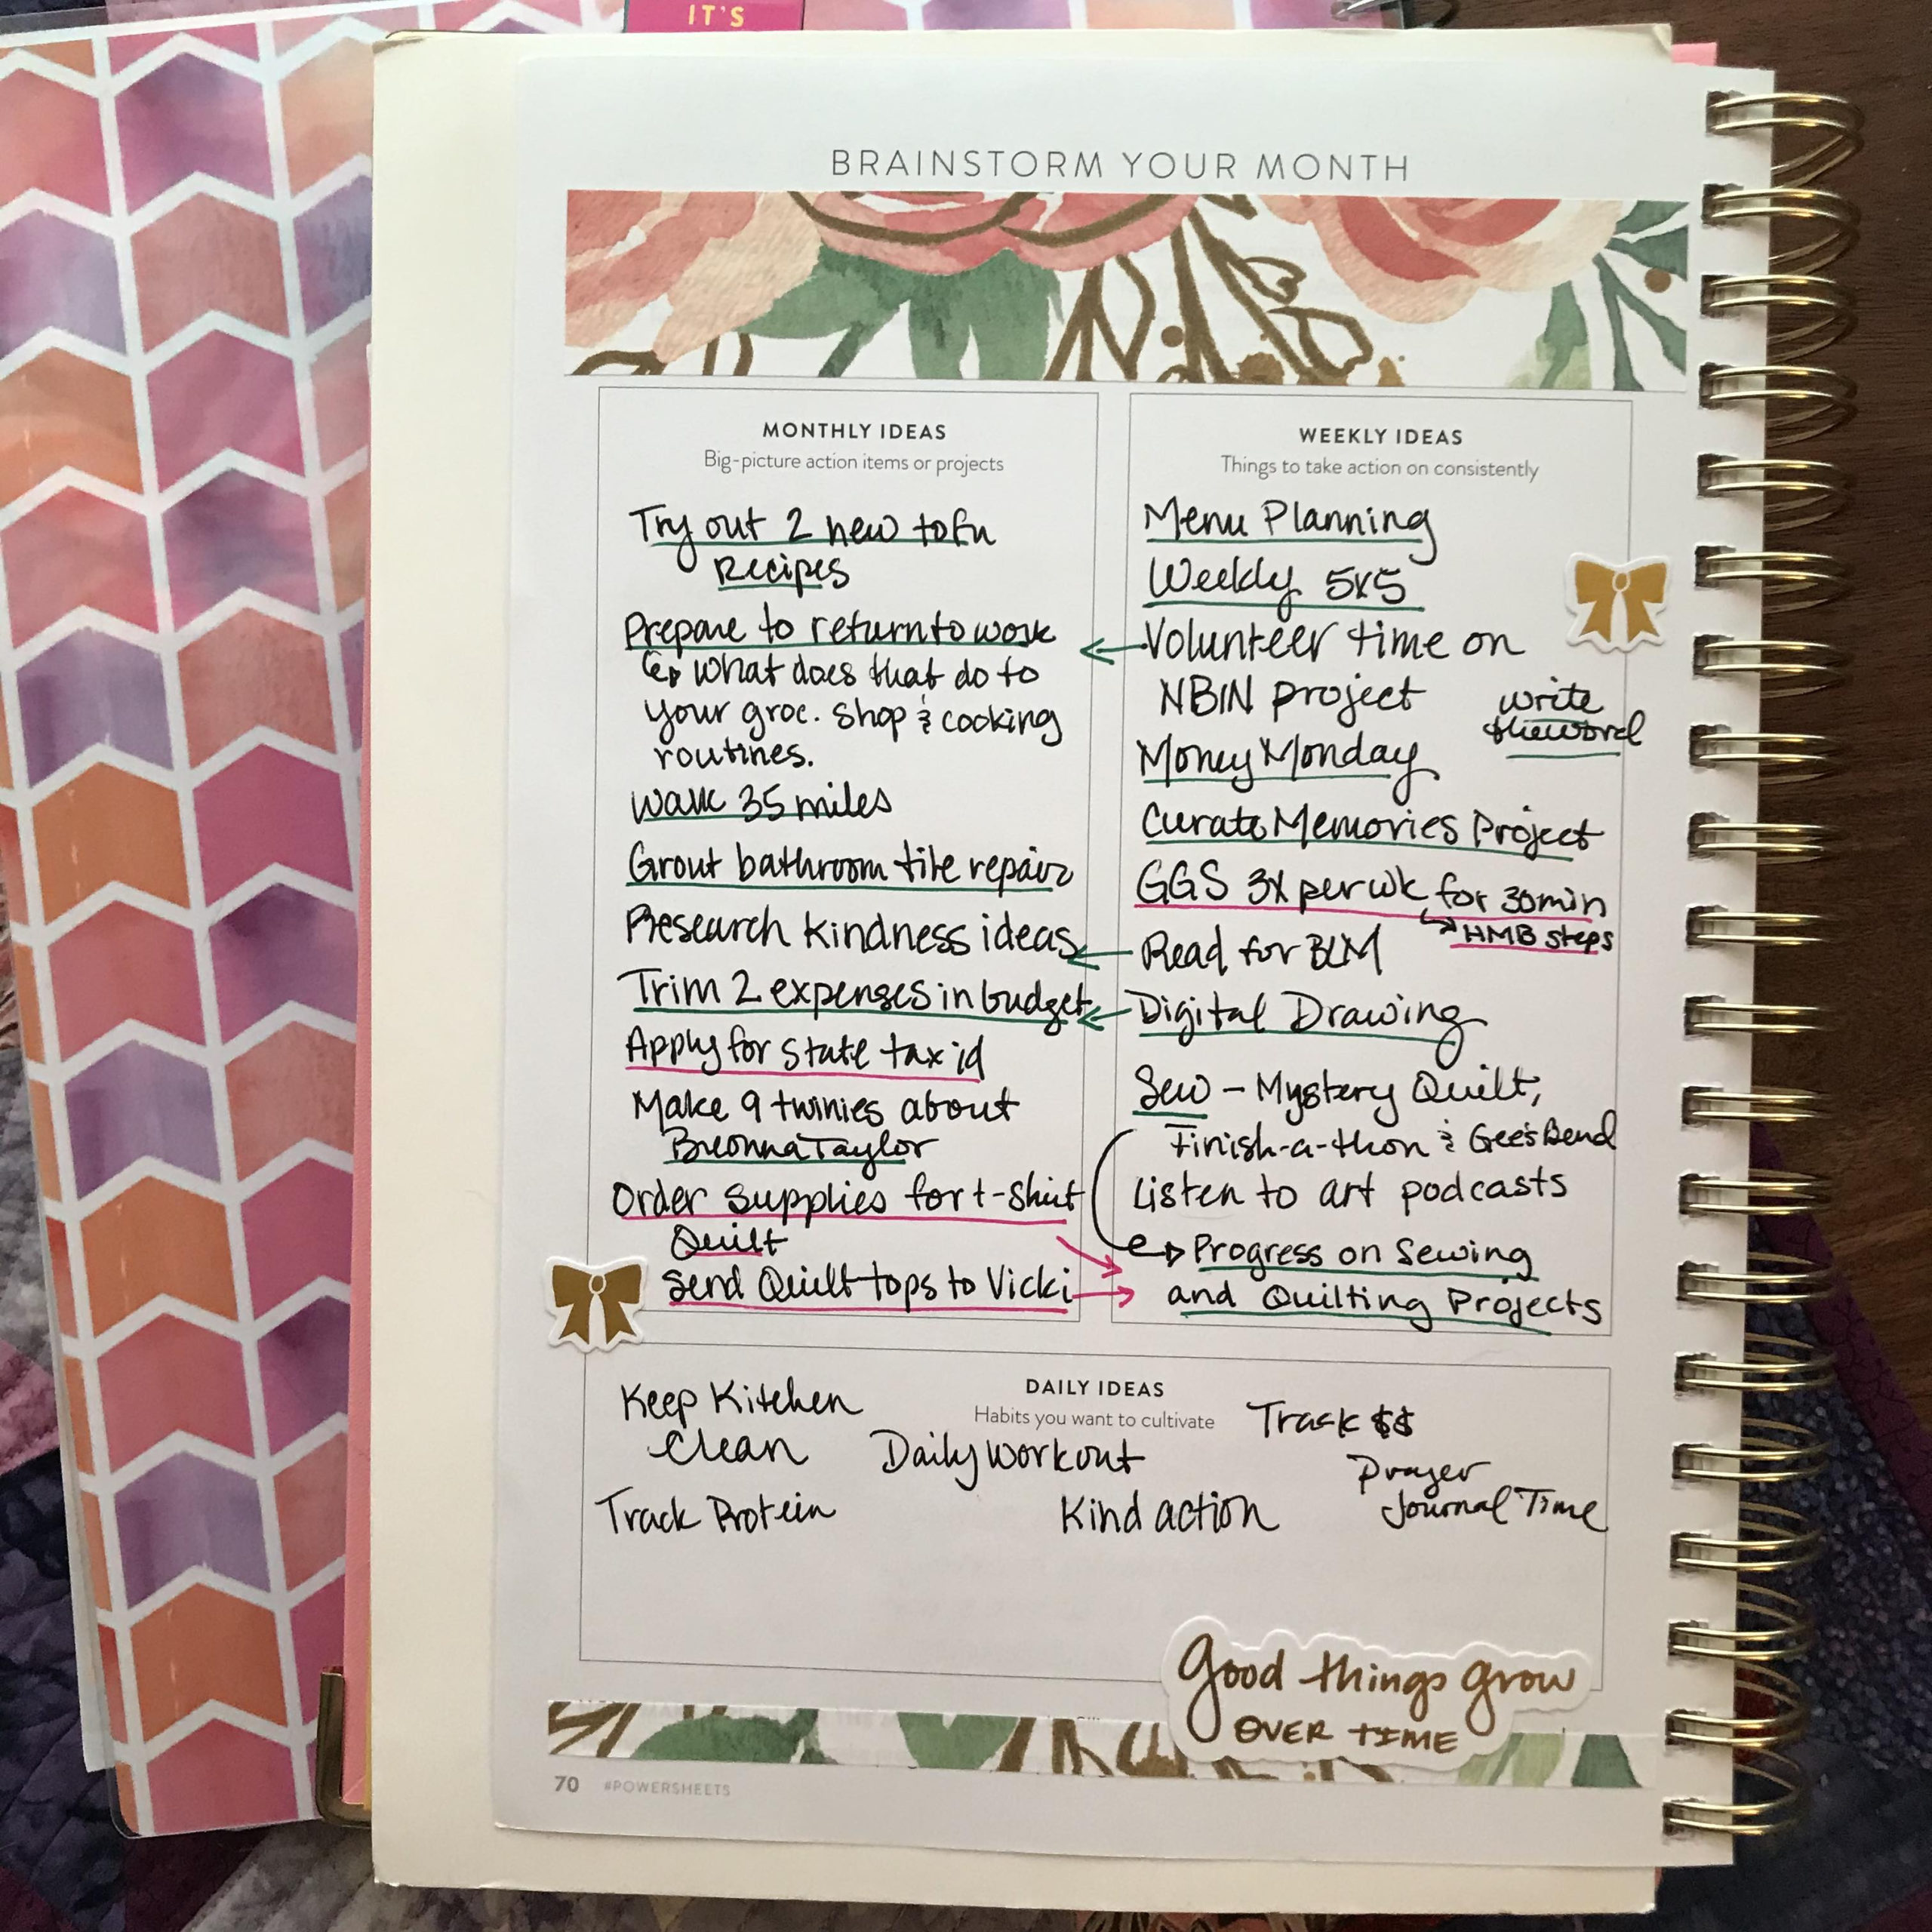 IT'S
BRAINSTORM YOUR MONTH
MONTHLY IDEAS
Big-picture action items or projects
Try out 2 new tofu
recipes
Prepare to return to work
what does that do to
your groc. shop & cooking
routines.
Walk 35 miles
Grout bathroom tile repair
Research kindness ideas
Trim 2 expenses in budget
Apply for state tax id
Make 9 twinies about
Breonna Taylor
Order supplies for t-shirt
Quilt
Send Quilt tops to Vicki
WEEKLY IDEAS
Things to take action on consistently
Menu Planning
Weekly 5x5
Volunteer time on
NBIN project
write
the word
Money Monday
Curate Memories Project
GGS 3x per wk for 30min
HMB steps
Read for BLM
Digital Drawing
Sew - Mystery Quilt,
Finish-a-thon & Gee's Bend
Listen to art podcasts
Progress on Sewing
and Quilting Projects
DAILY IDEAS
Habits you want to cultivate
Keep Kitchen
Clean
Daily workout
Track $$
Prayer
Journal Time
Track Protein
Kind action
Good things grow
OVER TIME
70 #POWERSHEETS